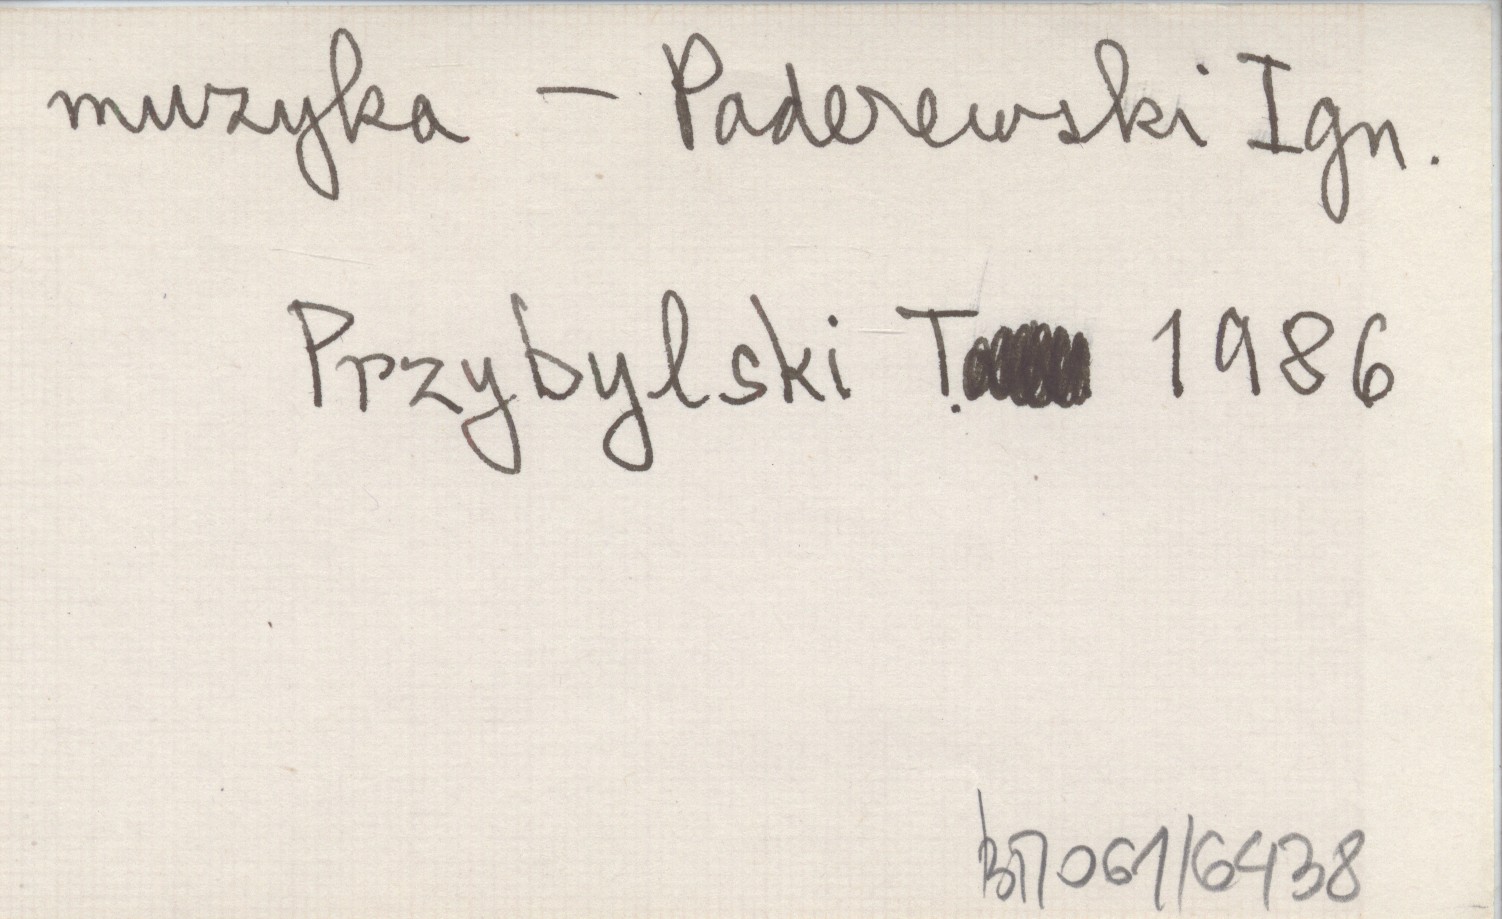 muzyka - Paderewski Ign.
Przybylski T. 1986
061/6438